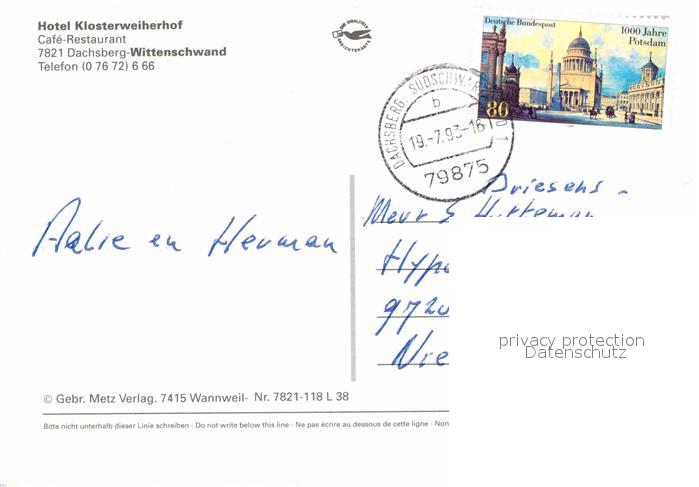 Hotel Klosterweiherhof
Café-Restaurant
7821 Dachsberg-Wittenschwand
Telefon (0 76 72) 6 66
Deutsche Bundespost
1000 Jahre
Potsdam
80
DACHSBERG, SÜDSCHWARZ
b
19.-7.93-16
79875
Driesens -
Meur &
Aalie en Herman
Hyp
9720
privacy protection
Datenschutz
© Gebr. Metz Verlag. 7415 Wannweil- Nr. 7821-118 L 38
Bitte nicht unterhalb dieser Linie schreiben - Do not write below this line - Ne pas écrire au dessous de cette ligne - Non